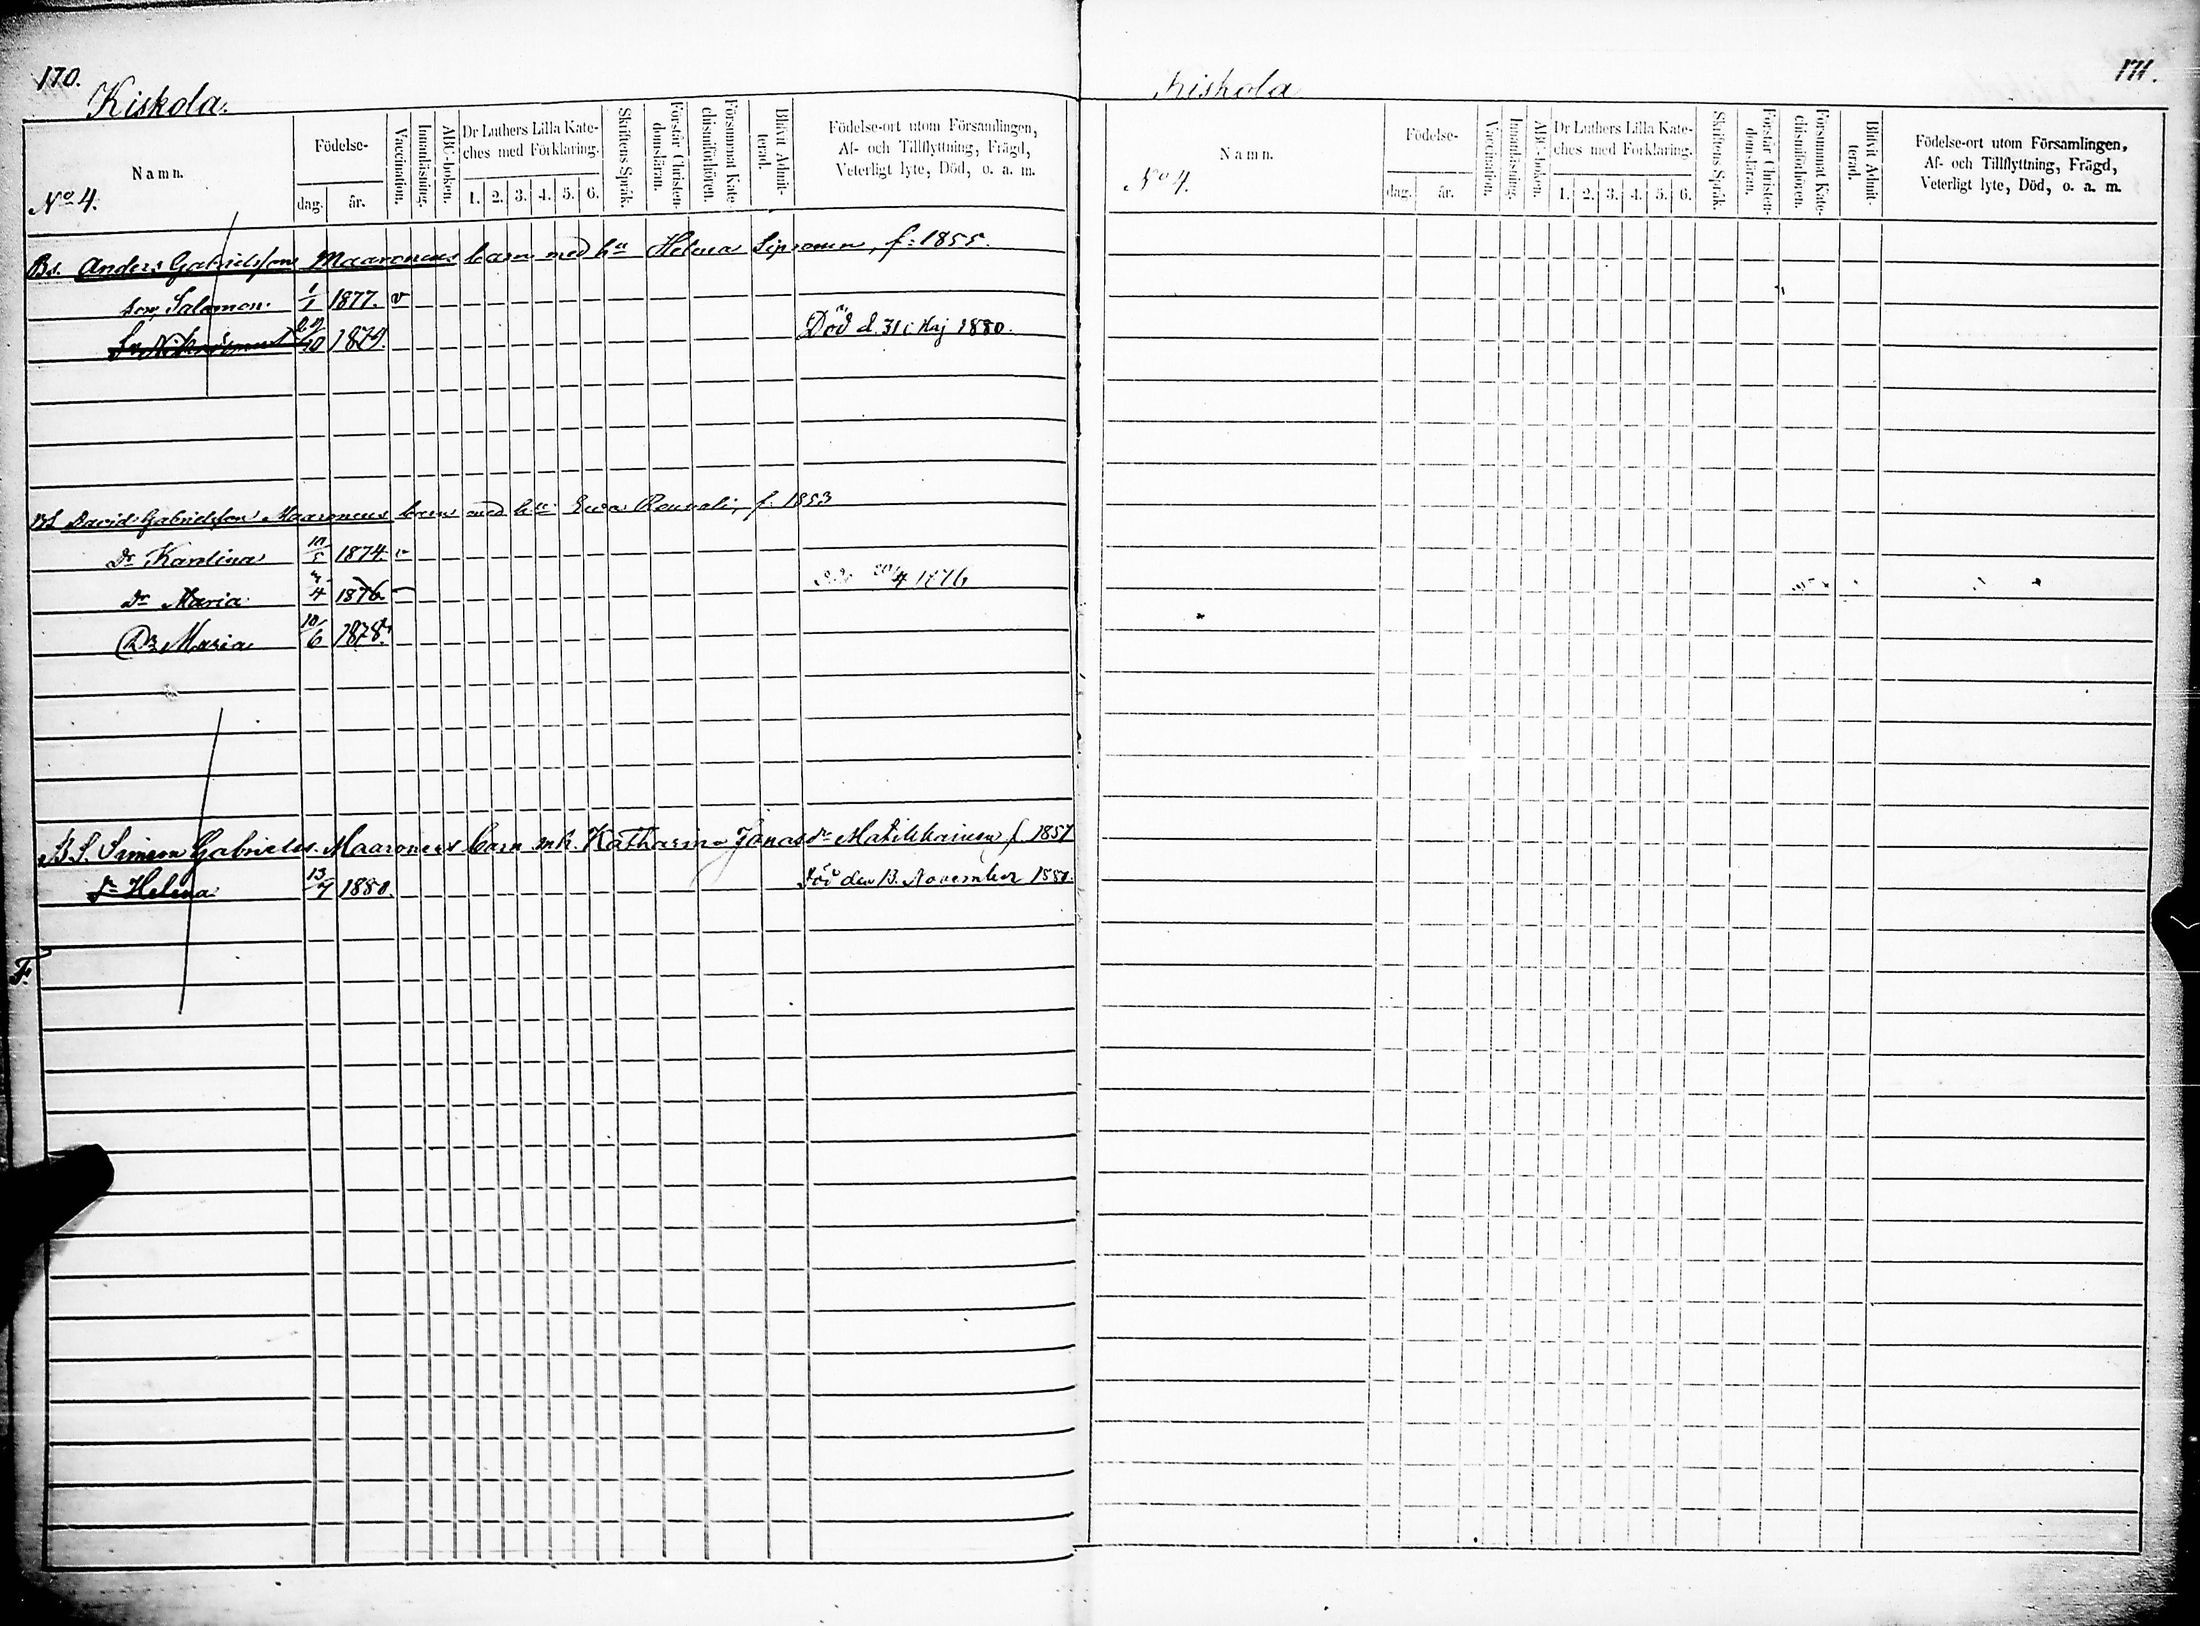 170.
Kiskola.
Namn.
No 4.
Födelse-
dag. år.
Vaccination.
Innanläsning.
ABC-boken.
Dr Luthers Lilla Kate-
ches med Förklaring.
1. 2. 3. 4. 5. 6.
Skriftens Språk.
Förstår Christen-
domsläran.
Försummat Kate-
chismiförhören.
Blifvit Admit-
terad.
Födelse-ort utom Församlingen,
Af- och Tillflyttning, Frägd,
Veterligt lyte, Död, o. a. m.
Bs. Anders Gabrielsson Maaronens barn med hu Helena Siponen, f: 1855.
son Salomon 1/1 1877. v
10 1879. Död d. 31 Maj 1880.
BS David Gabrielsson Maaronens barn med hu Eva Rouvali, f. 1853
Dr Karolina 10/5 1874. v
Dr Maria 4 1876 20/4 1876
Dr Maria 10/6 1878.
B.S. Simeon Gabriels. Maaronens barn m.h. Katharina Jonasdr Matikkainen f. 1857
Dr Helena 13/7 1880. Död den 13. November 1880.
F.
Kiskola
171.
Namn.
No 4.
Födelse-
dag. år.
Vaccination.
Innanläsning.
ABC-boken.
Dr Luthers Lilla Kate-
ches med Förklaring.
1. 2. 3. 4. 5. 6.
Skriftens Språk.
Förstår Christen-
domsläran.
Försummat Kate-
chismiförhören.
Blifvit Admit-
terad.
Födelse-ort utom Församlingen,
Af- och Tillflyttning, Frägd,
Veterligt lyte, Död, o. a. m.